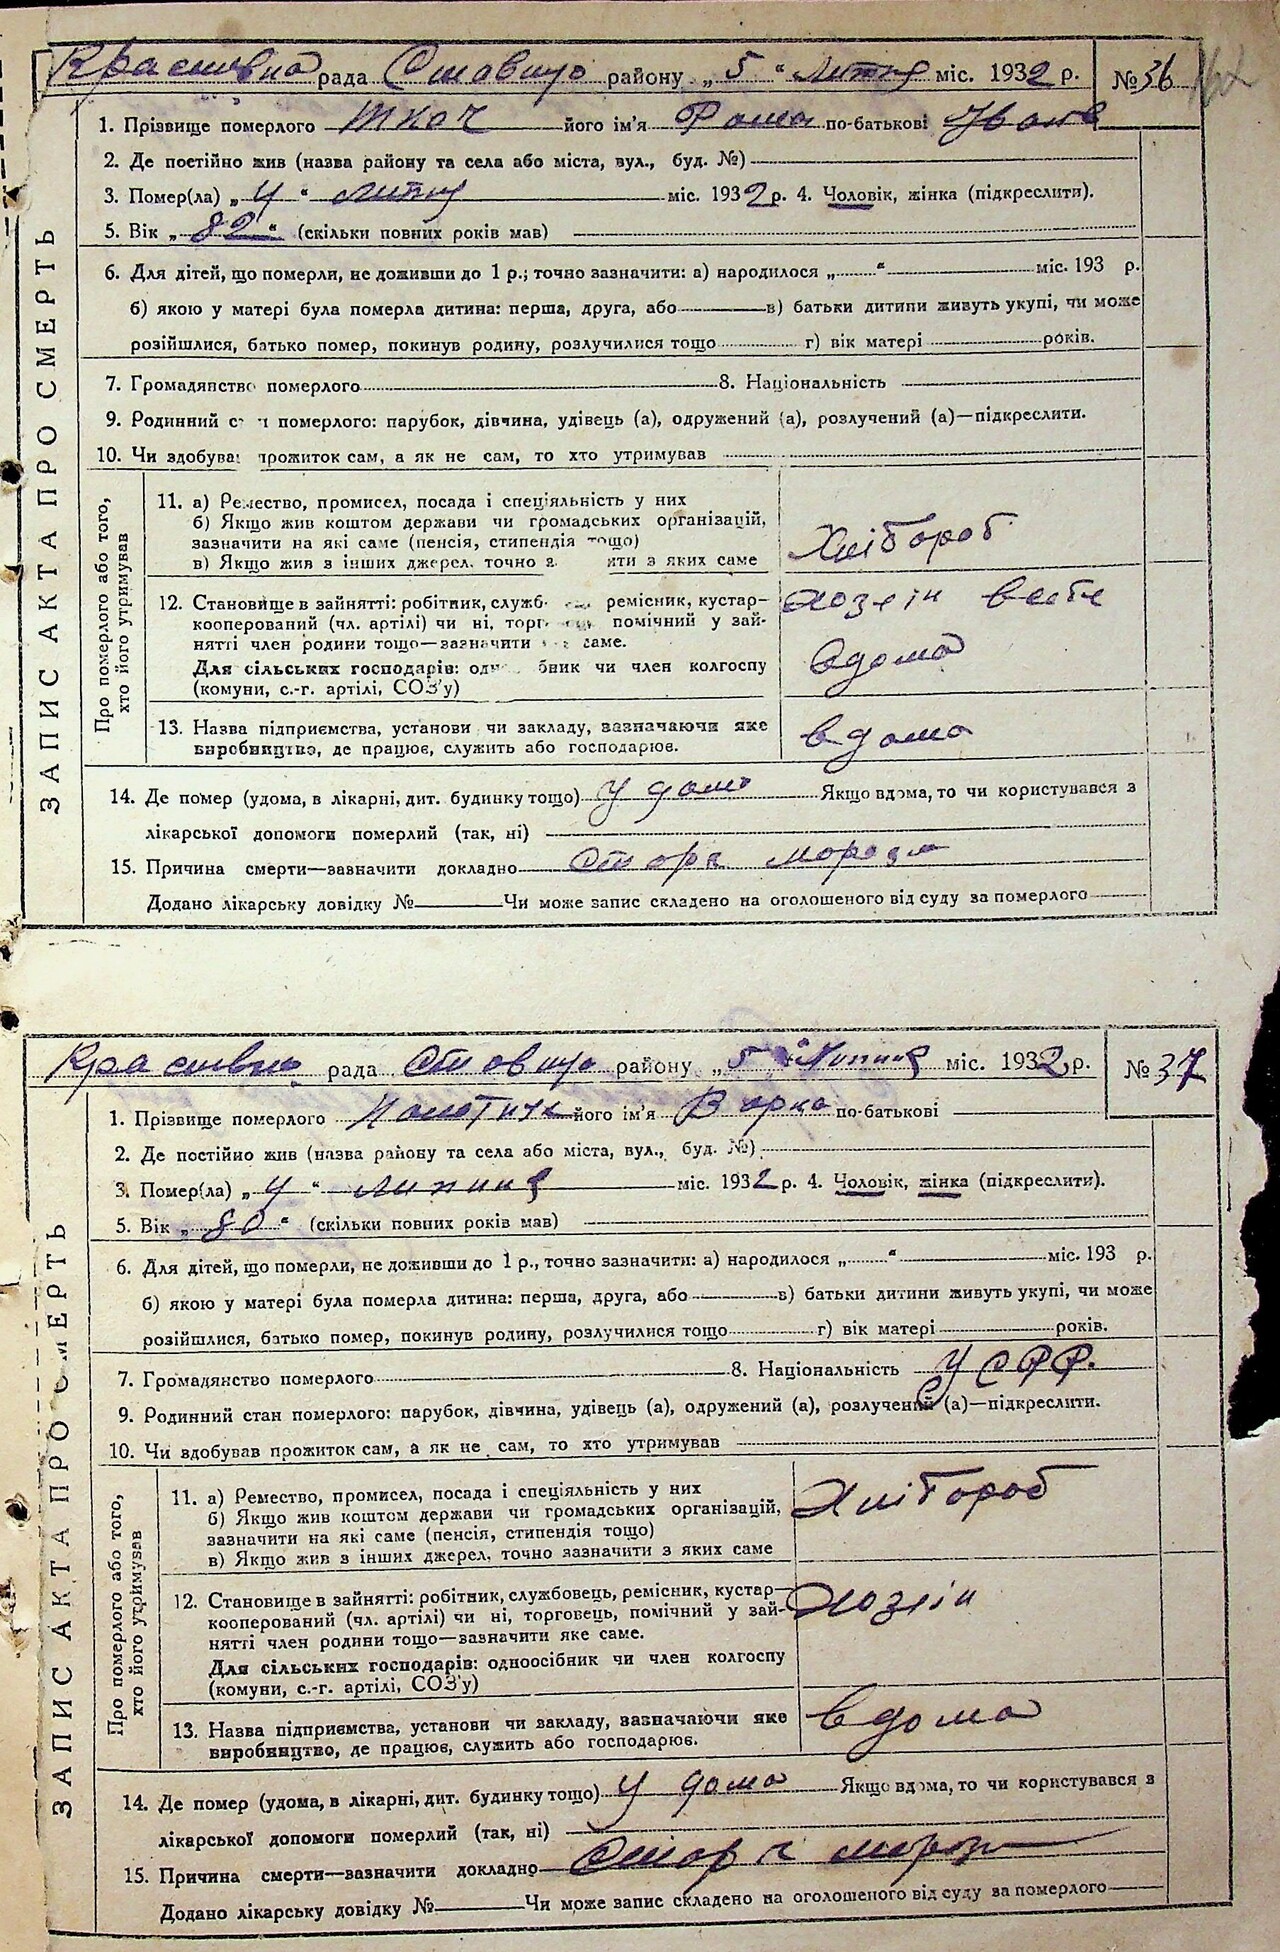 рада району „ 5 “ міс. 1932 р. № 36
1. Прізвище померлого Ткач його ім'я Рома по-батькові
2. Де постійно жив (назва району та села або міста, вул., буд. №)
3. Помер(ла) „ 4 “ міс. 1932 р. 4. Чоловік, жінка (підкреслити).
5. Вік „ 82 “ (скільки повних років мав)
6. Для дітей, що померли, не доживши до 1 р.; точно зазначити: а) народилося „ “ міс. 193 р.
б) якою у матері була померла дитина: перша, друга, або в) батьки дитини живуть укупі, чи може
розійшлися, батько помер, покинув родину, розлучилися тощо г) вік матері років.
7. Громадянство померлого 8. Національність
9. Родинний с н померлого: парубок, дівчина, удівець (а), одружений (а), розлучений (а)—підкреслити.
10. Чи здобував прожиток сам, а як не сам, то хто утримував
ЗАПИС АКТА ПРО СМЕРТЬ
Про померлого або того,
хто його утримував
11. а) Ремество, промисел, посада і спеціяльність у них
б) Якщо жив коштом держави чи громадських організацій,
зазначити на які саме (пенсія, стипендія тощо)
в) Якщо жив з інших джерел, точно з ити з яких саме
Хлібороб
12. Становище в зайнятті: робітник, служб ремісник, кустар—
кооперований (чл. артілі) чи ні, торг помічний у зай-
нятті член родини тощо—зазначити саме.
Для сільських господарів: одн бник чи член колгоспу
(комуни, с.-г. артілі, СОЗ'у)
хозяін
вдома
13. Назва підприємства, установи чи закладу, зазначаючи яке
виробництво, де працює, служить або господарює.
вдома
14. Де помер (удома, в лікарні, дит. будинку тощо) у дома Якщо вдома, то чи користувався з
лікарської допомоги померлий (так, ні)
15. Причина смерти—зазначити докладно
Додано лікарську довідку № Чи може запис складено на оголошеного від суду за померлого
рада району „ 5 “ Липня міс. 1932 р. № 37
1. Прізвище померлого його ім'я Варка по-батькові
2. Де постійно жив (назва району та села або міста, вул., буд. №)
3. Помер(ла) „ 4 “ липня міс. 1932 р. 4. Чоловік, жінка (підкреслити).
5. Вік „ 80 “ (скільки повних років мав)
6. Для дітей, що померли, не доживши до 1 р., точно зазначити: а) народилося „ “ міс. 193 р.
б) якою у матері була померла дитина: перша, друга, або в) батьки дитини живуть укупі, чи може
розійшлися, батько помер, покинув родину, розлучилися тощо г) вік матері років.
7. Громадянство померлого 8. Національність УСРР.
9. Родинний стан померлого: парубок, дівчина, удівець (а), одружений (а), розлучений (а)—підкреслити.
10. Чи здобував прожиток сам, а як не сам, то хто утримував
ЗАПИС АКТА ПРО СМЕРТЬ
Про померлого або того,
хто його утримував
11. а) Ремество, промисел, посада і спеціяльність у них
б) Якщо жив коштом держави чи громадських організацій,
зазначити на які саме (пенсія, стипендія тощо)
в) Якщо жив з інших джерел, точно зазначити з яких саме
Хлібороб
12. Становище в зайнятті: робітник, службовець, ремісник, кустар—
кооперований (чл. артілі) чи ні, торговець, помічний у зай-
нятті член родини тощо—зазначити яке саме.
Для сільських господарів: одноосібник чи член колгоспу
(комуни, с.-г. артілі, СОЗ'у)
хозяін
13. Назва підприємства, установи чи закладу, зазначаючи яке
виробництво, де працює, служить або господарює.
вдома
14. Де помер (удома, в лікарні, дит. будинку тощо) у дома Якщо вдома, то чи користувався з
лікарської допомоги померлий (так, ні)
15. Причина смерти—зазначити докладно
Додано лікарську довідку № Чи може запис складено на оголошеного від суду за померлого